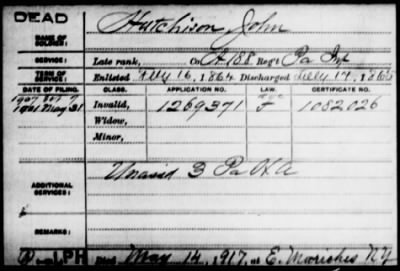 DEAD
NAME OF SOLDIER: Hutchison John
SERVICE: Late rank, Co. A 188 Reg't Pa Inf
TERM OF SERVICE: Enlisted 16, 1864 Discharged 1865
DATE OF FILING. CLASS. APPLICATION NO. LAW. CERTIFICATE NO.
1907
1921 May 31 Invalid, 1269371 1082026
Widow,
Minor,
ADDITIONAL SERVICES: Unassd 3 Pa H A
REMARKS:
PH Died May 14, 1917, at E. Moriches NY